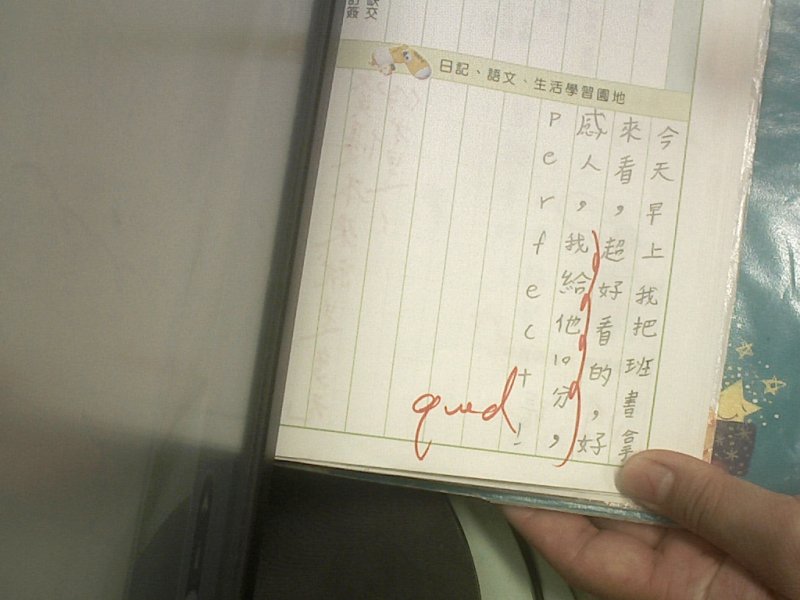 日記、語文、生活學習園地
今天早上我把班書拿
來看，超好看的，好
感人，我給他10分，
Perfect!
good